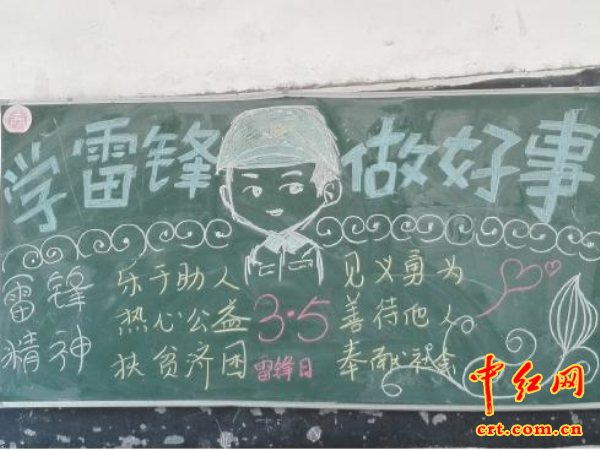 学雷锋 做好事
雷锋精神
乐于助人
热心公益
扶贫济困
3·5
雷锋日
见义勇为
善待他人
奉献社会
中红网
crt.com.cn